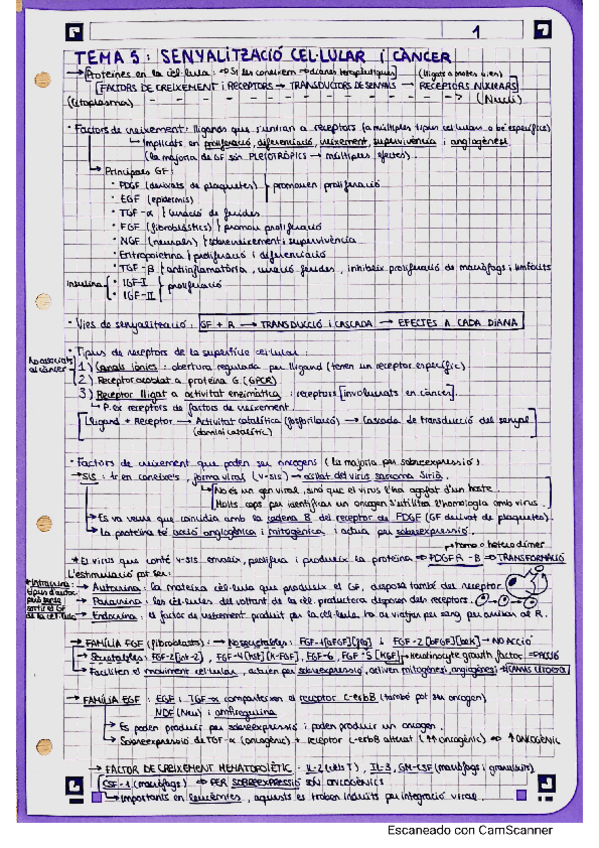 1
TEMA 5: SENYALITZACIÓ CEL·LULAR i CÀNCER
→ Proteïnes en la cèl·lula: → Si les coneixem → dianes terapèutiques (lligats a moltes vies)
[FACTORS DE CREIXEMENT i RECEPTORS → TRANSDUCTORS DE SENYALS → RECEPTORS NUCLEARS]
(Citoplasma) - - - - - - - - -> (Nucli)
· Factors de creixement: lligands que s'uniran a receptors (a múltiples tipus cel·lulars o bé específics)
Implicats en proliferació, diferenciació, creixement, supervivència i angiogènesi
(la majoria de GF són PLEIOTRÒPICS → múltiples efectes).
→ Principals GF:
· PDGF (derivats de plaquetes) } promouen proliferació
· EGF (epidermis)
· TGF-α } curació de ferides
· FGF (fibroblàstics) } promou proliferació
· NGF (neurones) } sobrecreixement i supervivència
· Entropoietina } proliferació i diferenciació
· TGF-β } antiinflamatòria, curació ferides, inhibeix proliferació de macròfags i limfòcits
Insulina { · IGF-I } proliferació
· IGF-II
· Vies de senyalització: GF + R → TRANSDUCCIÓ i CASCADA → EFECTES A CADA DIANA
· Tipus de receptors de la superfície cel·lular:
No associats al càncer
1) Canals iònics: obertura regulada per lligand (tenen un receptor específic)
2) Receptor acoblat a proteïna G (GPCR)
3) Receptor lligat a activitat enzimàtica: receptors [involucrats en càncer].
↳ P.ex receptors de factors de creixement.
[Lligand + Receptor → Activitat catalítica (fosforilació) → Cascada de transducció del senyal]
(domini catalític)
· Factors de creixement que poden ser oncogens (la majoria per sobreexpressió).
→ SIS: 1r en conèixer's, forma viral (v-sis) → aïllat del virus sarcoma
No és un gen viral, sinó que el virus l'ha agafat d'un hoste.
Molts cops per identificar un oncogen s'utilitza l'homologia amb virus.
→ Es va veure que coincidia amb la cadena B del receptor de PDGF (GF derivat de plaquetes).
→ La proteïna té acció angiogènica i mitogènica i actua per sobreexpressió.
homo o heterodímer
* El virus que conté v-sis envaeix, prolifera i produeix la proteïna → PDGFR-B → TRANSFORMACIÓ
L'estimulació pot ser:
→ Autocrina: la mateixa cèl·lula que produeix el GF, disposa també del receptor
→ Paracrina: les cèl·lules del voltant de la cèl. productora disposen dels receptors.
→ Endocrina: el factor de creixement produït per la cèl·lula ha de viatjar per sang per arribar al R.
→ FAMÍLIA FGF (fibroblasts): → No secretables: FGF-1 i FGF-2 → NO ACCIÓ
→ Secretables: FGF-4 FGF-6, FGF-5 → keratinocyte growth factor → ACCIÓ
→ Faciliten el moviment cel·lular, actuen per sobreexpressió, activen mitogènesi, angiogènesi
→ FAMÍLIA EGF: EGF i TGF-α comparteixen el receptor c-erbB (també pot ser oncogen)
NDF (Neu) i amfiregulina
→ Es poden produir per sobreexpressió i poden produir un oncogen.
→ Sobreexpressió de TGF-α (oncogènic) + receptor c-erbB alterat (↑↑ oncogènic) → ↑ ONCOGÈNIC
→ FACTOR DE CREIXEMENT HEMATOPOIÈTIC: IL-2 (cèls T), IL-3, GM-CSF (macròfags i granulòcits)
CSF-1 (macròfags) → PER SOBREEXPRESSIÓ SÓN ONCOGÈNICS
→ Importants en leucèmies, aquests es troben induïts per integració viral.
Escaneado con CamScanner